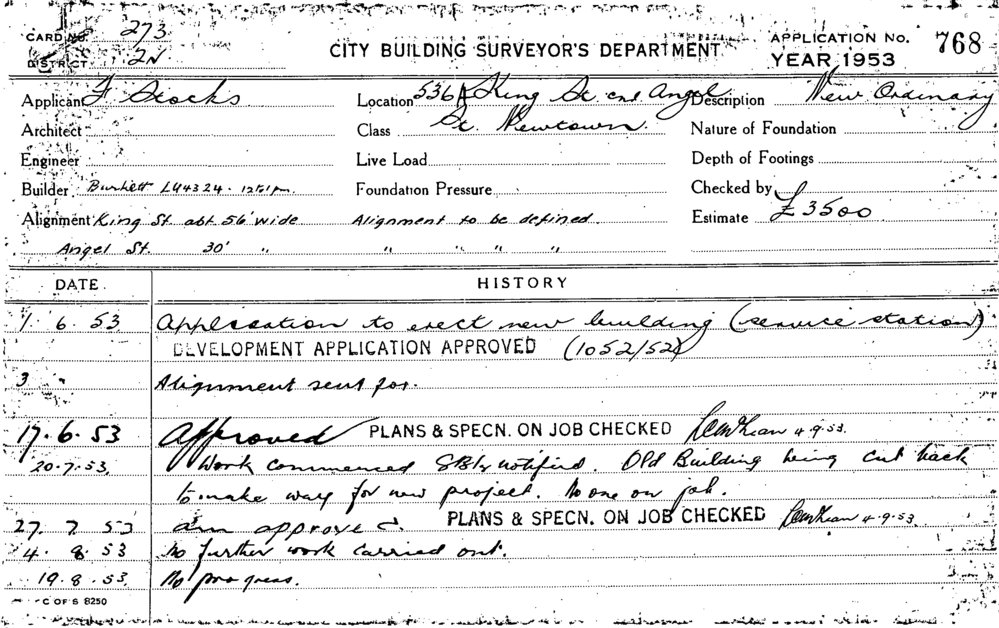 CARD No. 273
DISTRICT. 2N
CITY BUILDING SURVEYOR'S DEPARTMENT
APPLICATION No. 768
YEAR 1953
Applicant F Stocks
Location 536A King St cnr Angel St. Newtown.
Description New Ordinary
Architect
Class
Nature of Foundation
Engineer
Live Load
Depth of Footings
Builder Burkett LU4324.
Foundation Pressure
Checked by
Alignment King St. abt 56' wide Alignment to be defined.
Estimate £3500
Angel St. 30' " " " " "
DATE
HISTORY
1. 6. 53 Application to erect new building (service station).
DEVELOPMENT APPLICATION APPROVED (1052/52)
3 " Alignment sent for.
17. 6. 53 Approved PLANS & SPECN. ON JOB CHECKED 4-9-53.
20.7.53. Work commenced notified. Old Building being cut back
to make way for new project. No one on job.
27. 7. 53 am approved. PLANS & SPECN. ON JOB CHECKED 4-9-53.
4. 8. 53 No further work carried out.
19. 8. 53 No progress.
C OF S 8250